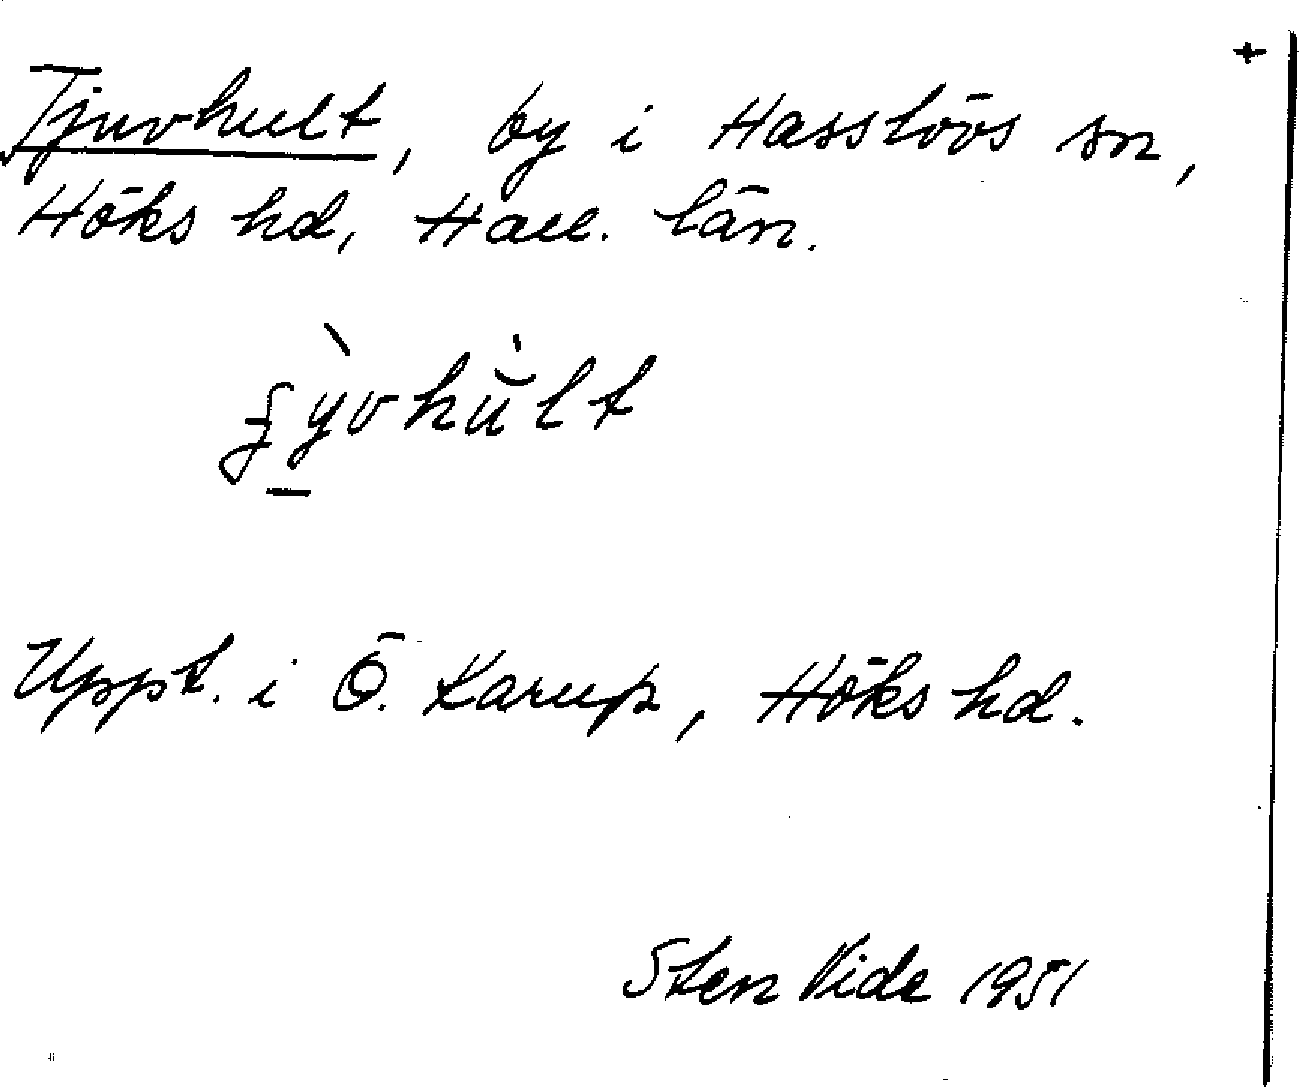 +
Tjuvhult, by i Hasslövs sn,
Höks hd, Hall. län.
Uppt. i Ö. Karup, Höks hd.
Sten Vide 1951